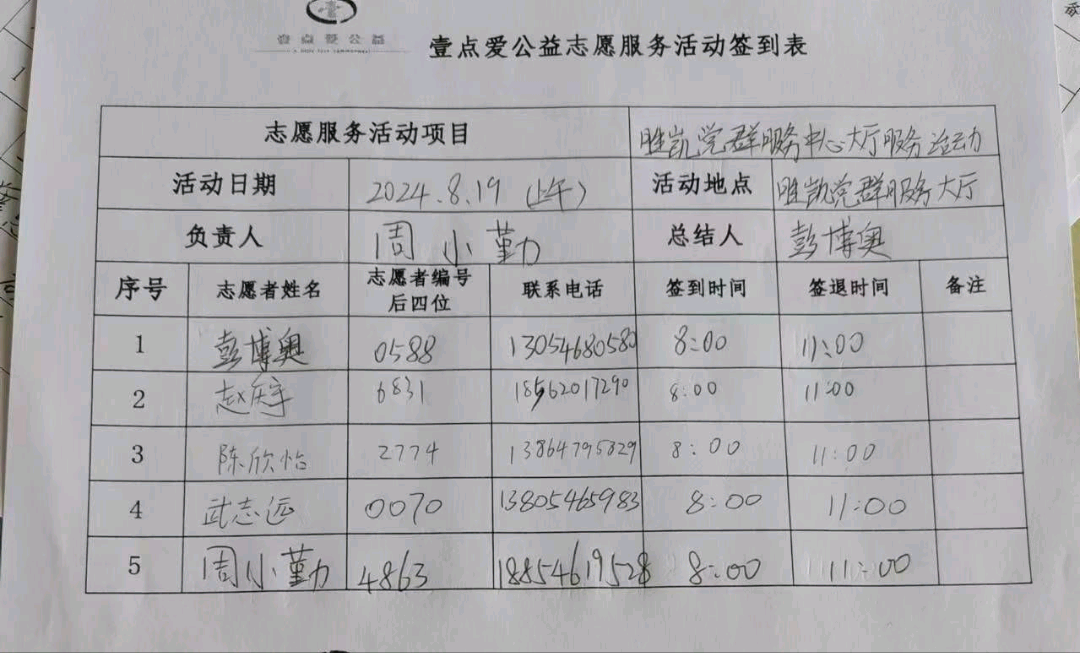 壹点爱公益
壹点爱公益志愿服务活动签到表
志愿服务活动项目 胜凯党群服务中心大厅服务活动
活动日期 2024.8.19 (上午) 活动地点 胜凯党群服务大厅
负责人 周小勤 总结人 彭博奥
序号 志愿者姓名 志愿者编号后四位 联系电话 签到时间 签退时间 备注
1 彭博奥 0588 13054680580 8:00 11:00
2 赵庆宇 6831 18562017290 8:00 11:00
3 陈欣怡 2774 13864795829 8:00 11:00
4 武志远 0070 13805465983 8:00 11:00
5 周小勤 4863 18854619528 8:00 11:00